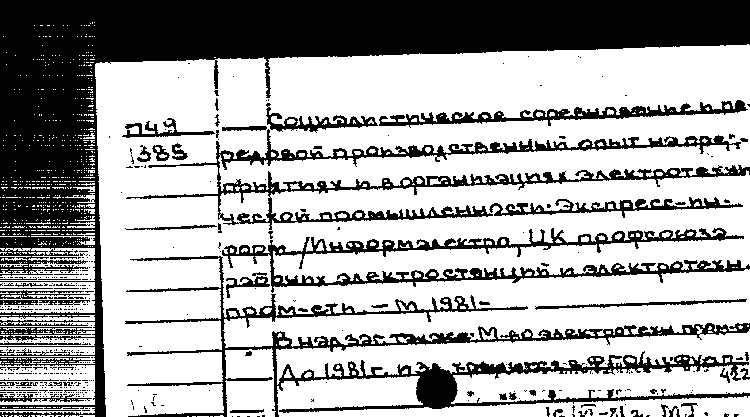 П49 Социалистическое соревнование и пе-
1385 редовой производственный опыт на пред-
приятиях и в организациях электротехни-
ческой промышленности: Экспресс-ин-
форм /Информэлектро, ЦК профсоюза
рабочих электростанций и электротехн.
пром-сти. – М, 1981-
В надзаг. также: М-во электротехн пром-с
До 1981г. изд. хранится в